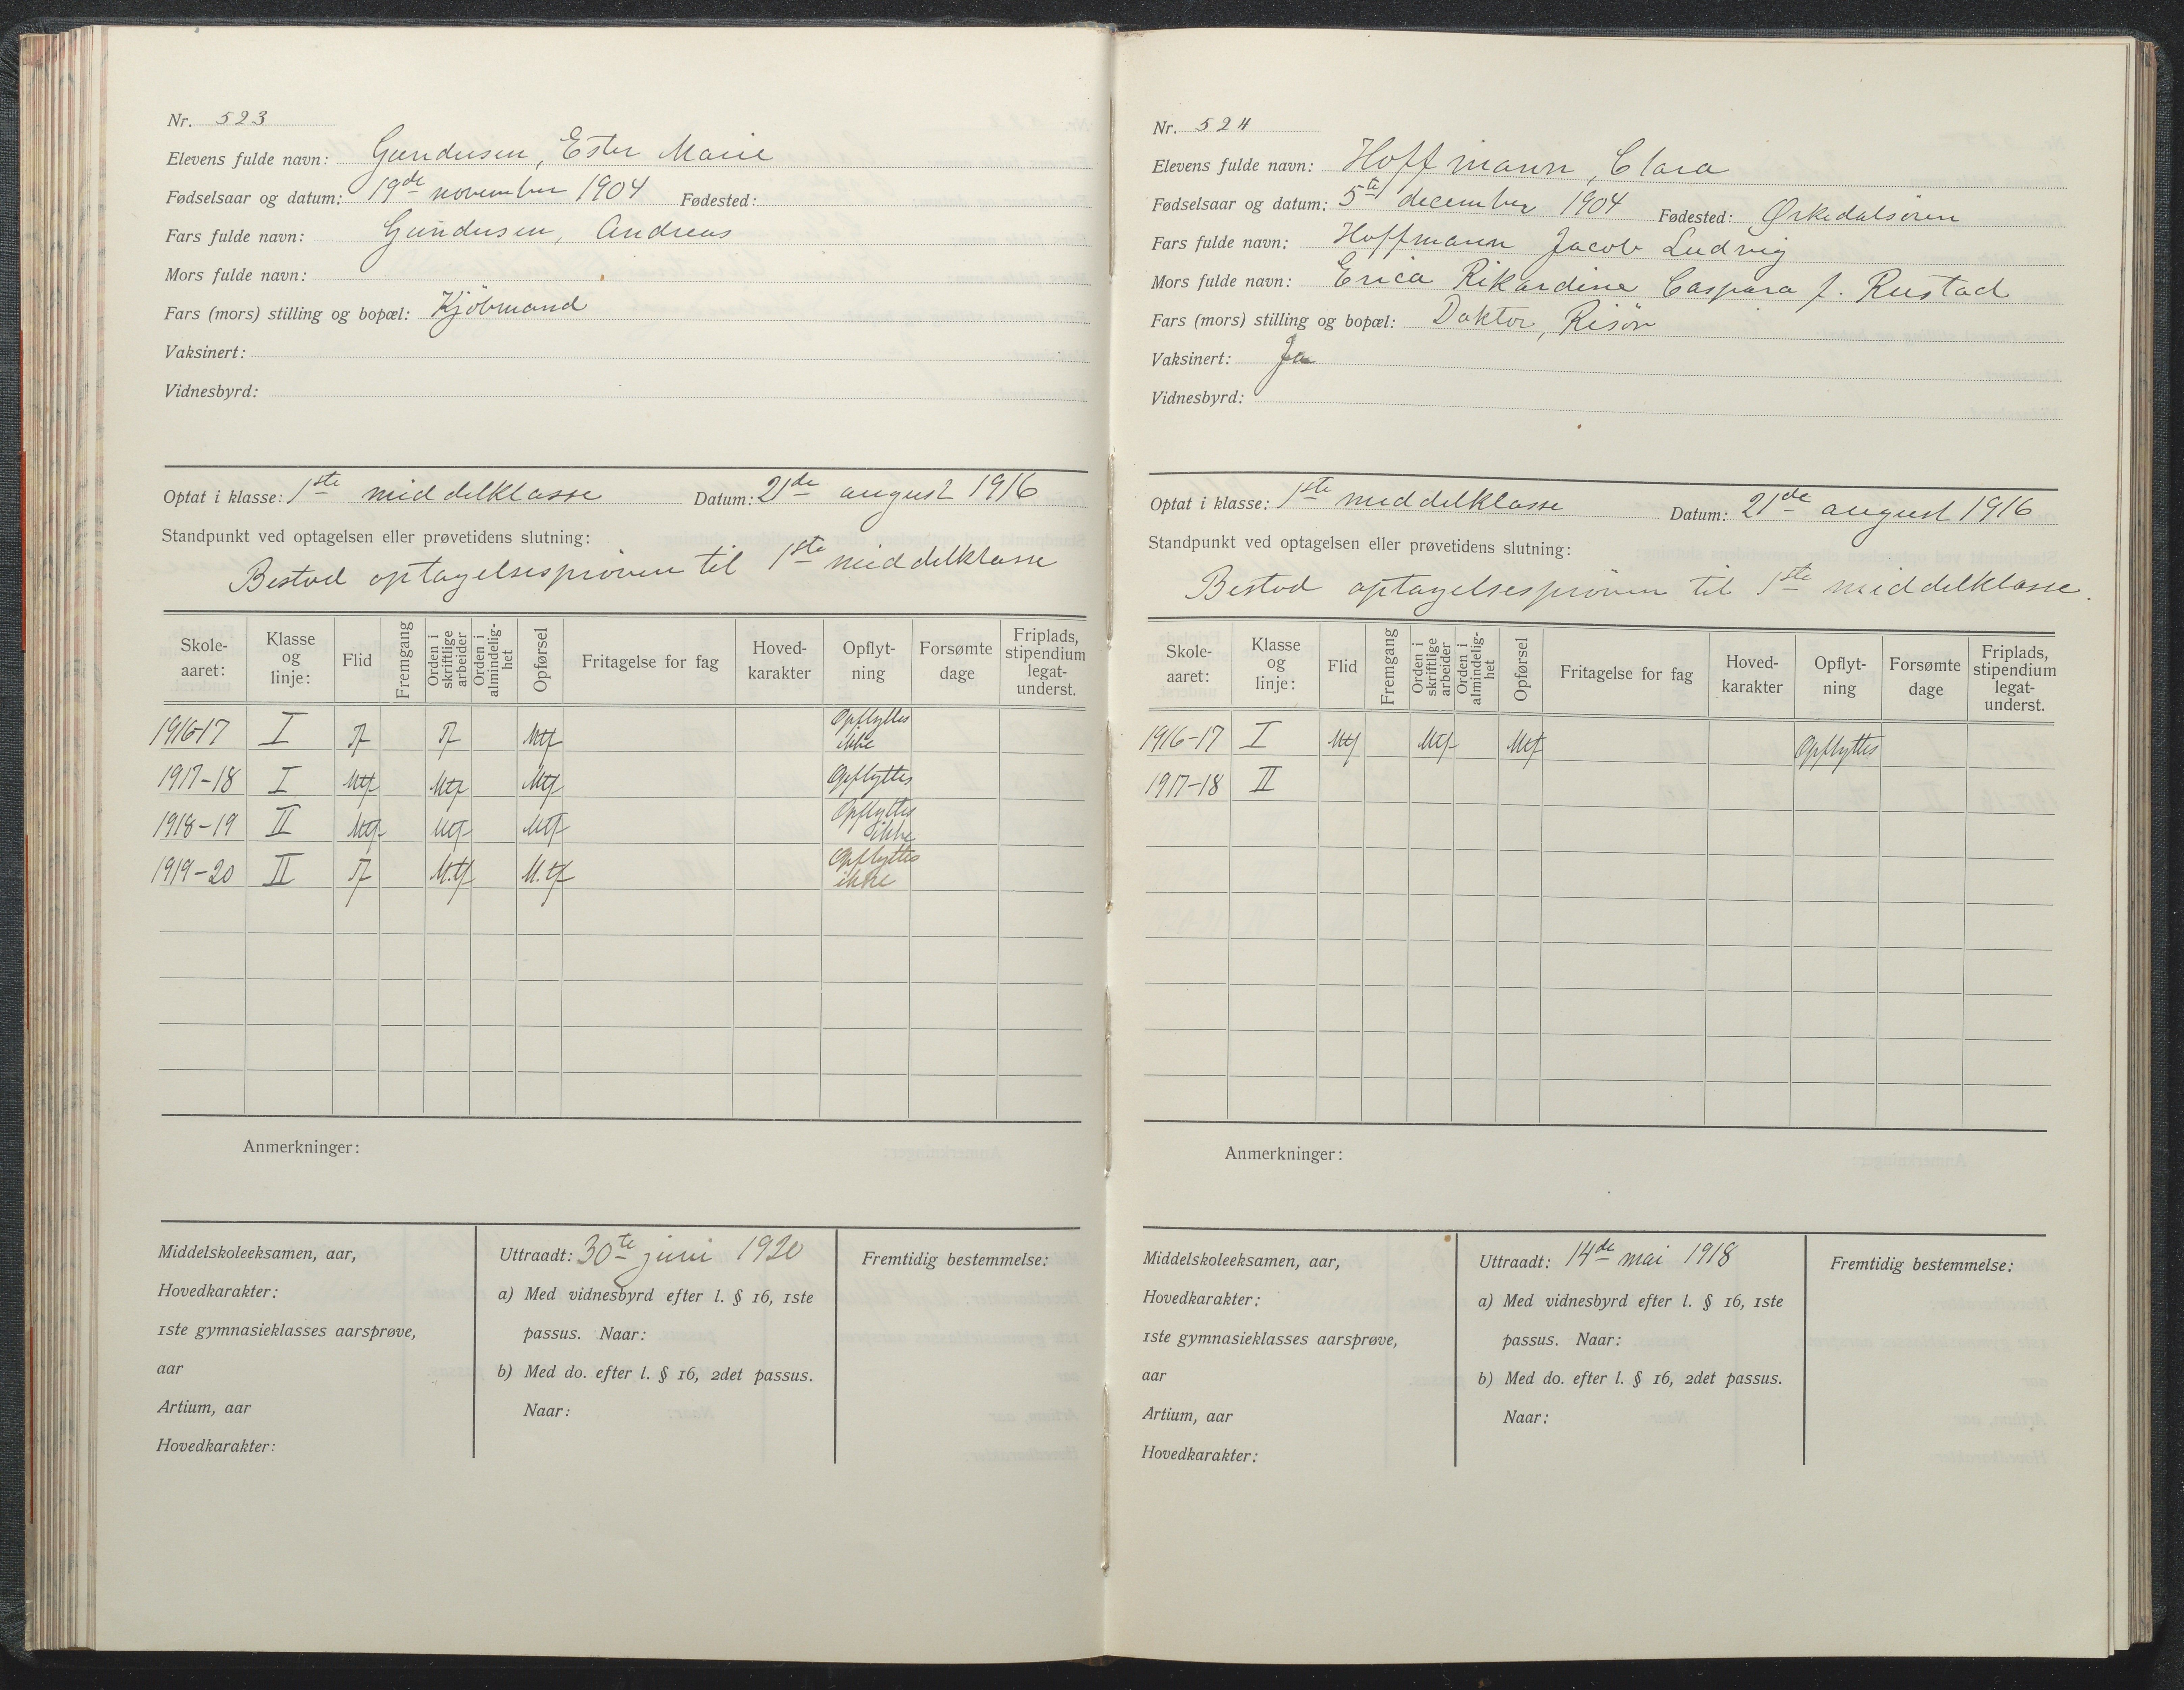 Nr. 523
Elevens fulde navn: Gundersen, Ester Marie
Fødselsaar og datum: 19de november 1904 Fødested:
Fars fulde navn: Gundersen, Andreas
Mors fulde navn:
Fars (mors) stilling og bopæl: Kjöbmand
Vaksinert:
Vidnesbyrd:
Optat i klasse: 1ste middelklasse Datum: 21de august 1916
Standpunkt ved optagelsen eller prøvetidens slutning:
Bestod optagelsespröven til 1ste middelklasse
Skole-aaret: Klasse og linje: Flid Fremgang Orden i skriftlige arbeider Orden i almindelig-het Opførsel Fritagelse for fag Hoved-karakter Opflyt-ning Forsømte dage Friplads, stipendium legat-underst.
1916-17 I T T Mtf Opflyttes ikke
1917-18 I Mtf Mtf Mtf Opflyttes
1918-19 II Mtf Mtf Mtf Opflyttes ikke
1919-20 II T M.tf M.tf Opflyttes ikke
Anmerkninger:
Middelskoleeksamen, aar,
Hovedkarakter:
1ste gymnasieklasses aarsprøve,
aar
Artium, aar
Hovedkarakter:
Uttraadt: 30te juni 1920
a) Med vidnesbyrd efter l. § 16, 1ste
passus. Naar:
b) Med do. efter l. § 16, 2det passus.
Naar:
Fremtidig bestemmelse:
Nr. 524
Elevens fulde navn: Hoffmann, Clara
Fødselsaar og datum: 5te december 1904 Fødested: Ørkedalsören
Fars fulde navn: Hoffmann Jacob Ludvig
Mors fulde navn: Erica Rikardine Caspara f. Rustad
Fars (mors) stilling og bopæl: Doktor, Risör
Vaksinert: Ja
Vidnesbyrd:
Optat i klasse: 1ste middelklasse Datum: 21de august 1916
Standpunkt ved optagelsen eller prøvetidens slutning:
Bestod optagelsespröven til 1ste middelklasse.
Skole-aaret: Klasse og linje: Flid Fremgang Orden i skriftlige arbeider Orden i almindelig-het Opførsel Fritagelse for fag Hoved-karakter Opflyt-ning Forsømte dage Friplads, stipendium legat-underst.
1916-17 I Mtf Mtf Mtf Opflyttes
1917-18 II
Anmerkninger:
Middelskoleeksamen, aar,
Hovedkarakter:
1ste gymnasieklasses aarsprøve,
aar
Artium, aar
Hovedkarakter:
Uttraadt: 14de mai 1918
a) Med vidnesbyrd efter l. § 16, 1ste
passus. Naar:
b) Med do. efter l. § 16, 2det passus.
Naar:
Fremtidig bestemmelse: